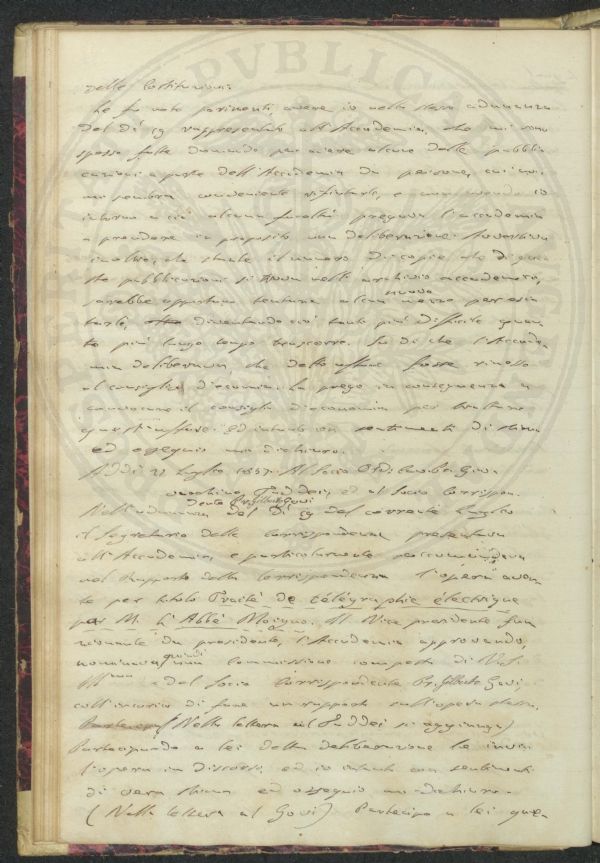 delle Costituzioni.
Le fo noto parimenti, avere io nella stessa adunanza
del dì 19 rappresentato all'Accademia, che mi sono
spesso fatte domande per avere alcune delle pubbli
cazioni a parte dell'Accademia da persone, cui
mi sembra conveniente rifiutarle, e non avendo io
intorno a ciò alcuna facoltà pregava l'accademia
a prendere in proposito una deliberazione. Avvertiva
inoltre, che stante il numero di copie, che di que
ste pubblicazioni si trova nell'archivio accademico,
sarebbe opportuno tentare alcun nuovo mezzo per esi
tarle, diventando ciò tanto più difficile quan
to più lungo tempo trascorre. Su di che l'Accade
mia deliberava, che detto affare fosse rimesso
al consiglio d'economia. La prego in conseguenza a
convocare il consiglio d'economia per trattare
quest'affare. Ed intanto con sentimenti di stima
ed ossequio mi dichiaro.
Addì 21 Luglio 1857. Al Socio Ord.
Taddei, ed al Socio Corrispon.
dente Pr. Gilberto Govi
Nell'adunanza del dì 19 del corrente Luglio
il Segretario delle corrispondenze presentava
all'Accademia, e particolarmente raccomandava
nel rapporto della Corrispondenza l'opera aven
te per titolo Traité de télégraphie électrique
par M. L'Abbé Moigno. Il Vice presidente fun
zionante da presidente, l'Accademia approvando,
nominava quindi una commissione composta di V.S.
Ill.ma e del Socio Corrispondente Pr. Gilberto Govi,
coll'incarico di fare un rapporto sull'opera stessa.
(Nella lettera al Taddei si aggiunga)
Partecipando a lei detta deliberazione le invio
l'opera in discorso; ed io intanto con sentimenti
di vera stima ed ossequio mi dichiaro.
(Nella lettera al Govi) Partecipo a lei